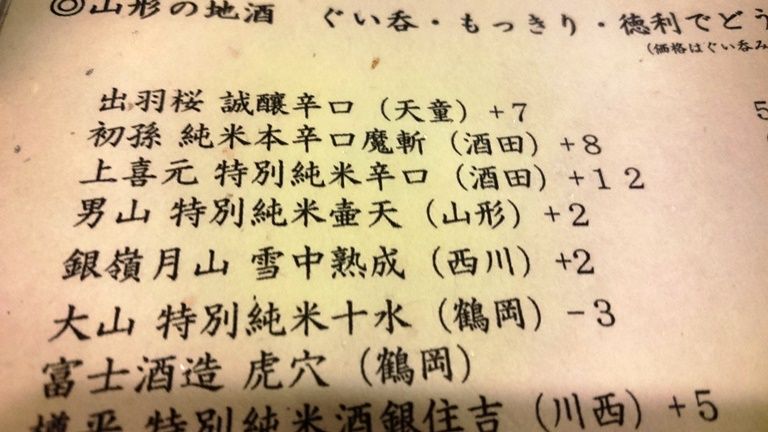 ◎山形の地酒　ぐい呑・もっきり・徳利でどう
(価格はぐい呑み
出羽桜 誠醸辛口 (天童) +7
初孫 純米本辛口魔斬 (酒田) +8
上喜元 特別純米辛口 (酒田) +12
男山 特別純米壺天 (山形) +2
銀嶺月山 雪中熟成 (西川) +2
大山 特別純米十水 (鶴岡) -3
富士酒造 虎穴 (鶴岡)
樽平 特別純米酒銀住吉 (川西) +5